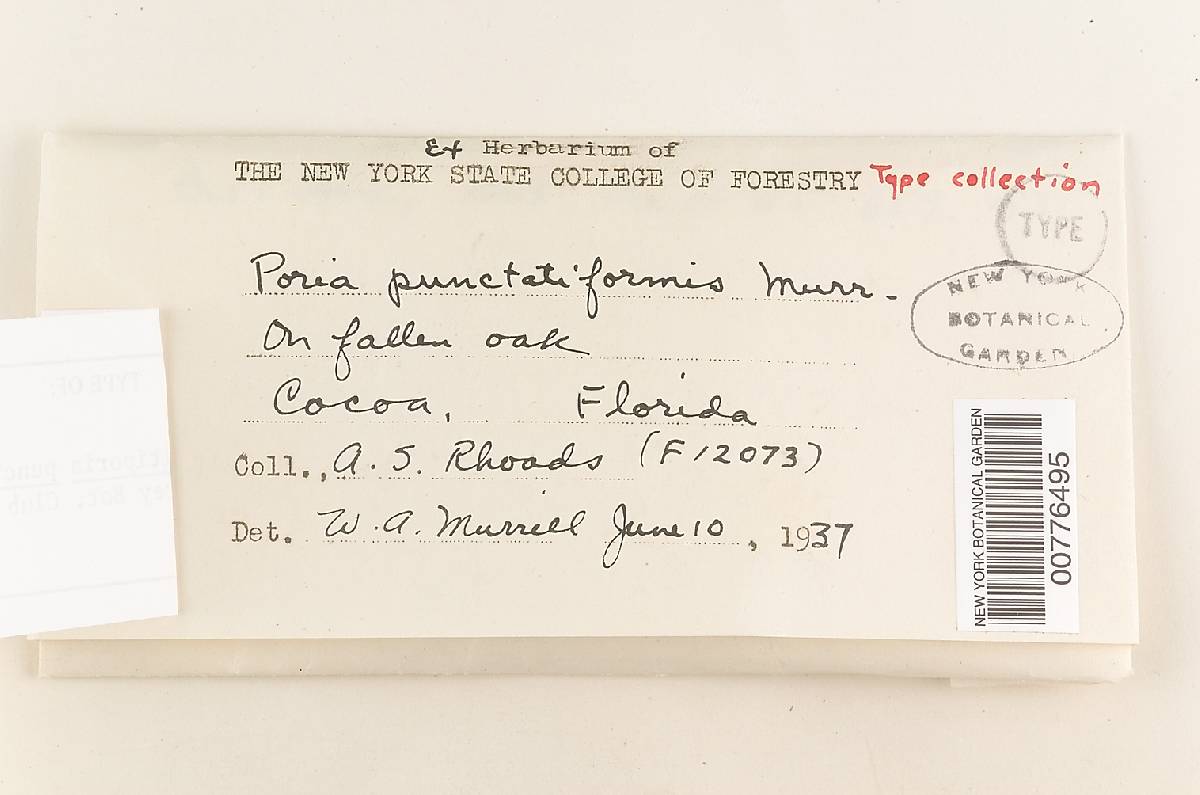 Ex Herbarium of
THE NEW YORK STATE COLLEGE OF FORESTRY Type collection
TYPE
NEW YORK
BOTANICAL
GARDEN
Poria punctatiformis Murr.
On fallen oak
Cocoa, Florida
Coll., A. S. Rhoads (F12073)
Det. W. A. Murrill June 10, 1937
NEW YORK BOTANICAL GARDEN
00776495
TYPE OF: